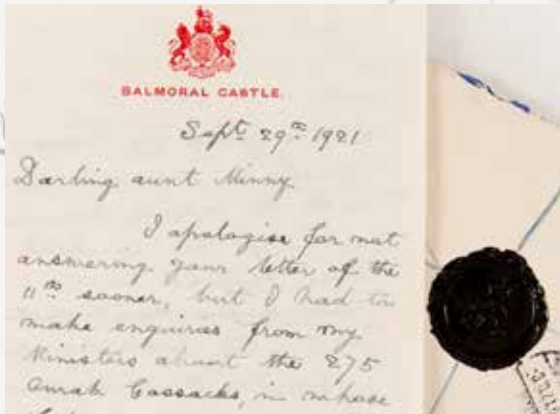 BALMORAL CASTLE.
Sept. 29th 1921
Darling aunt Minny
I apologise for not
answering your letter of the
11th sooner, but I had to
make enquiries from my
Ministers about the 275
Cossacks, in whose